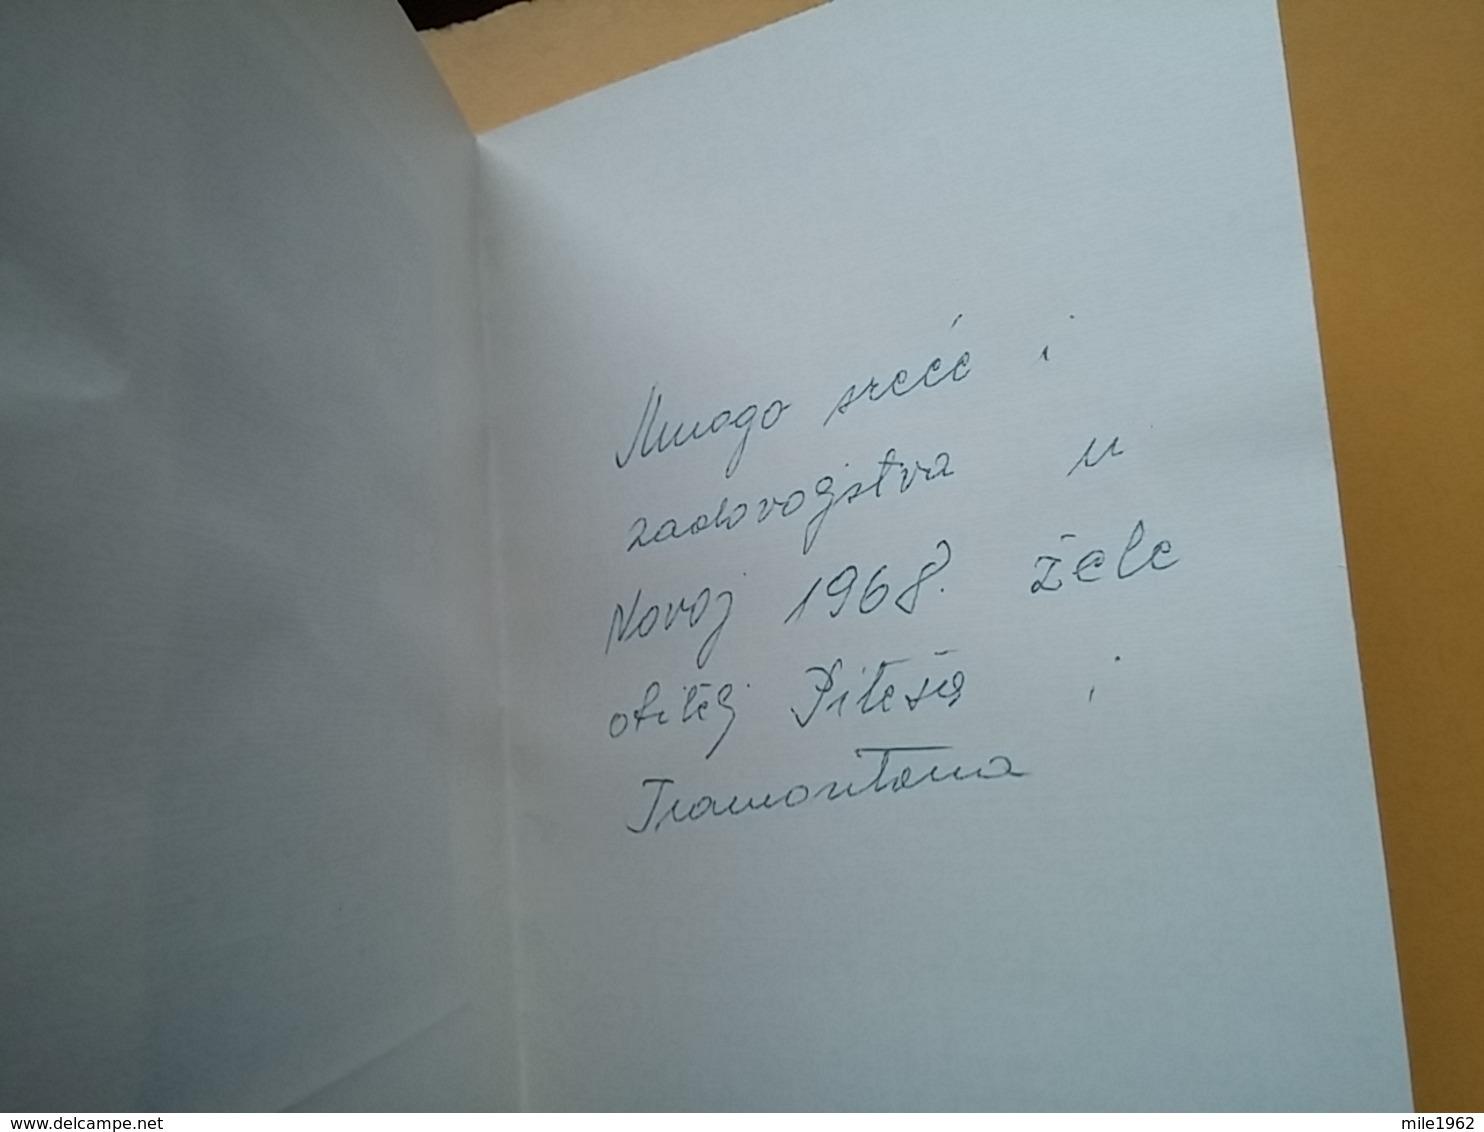 Mnogo sreće i
zadovojstva u
Novoj 1968. žele
obitelj Piteša i
Tramontana
www.delcampe.net
mile1962